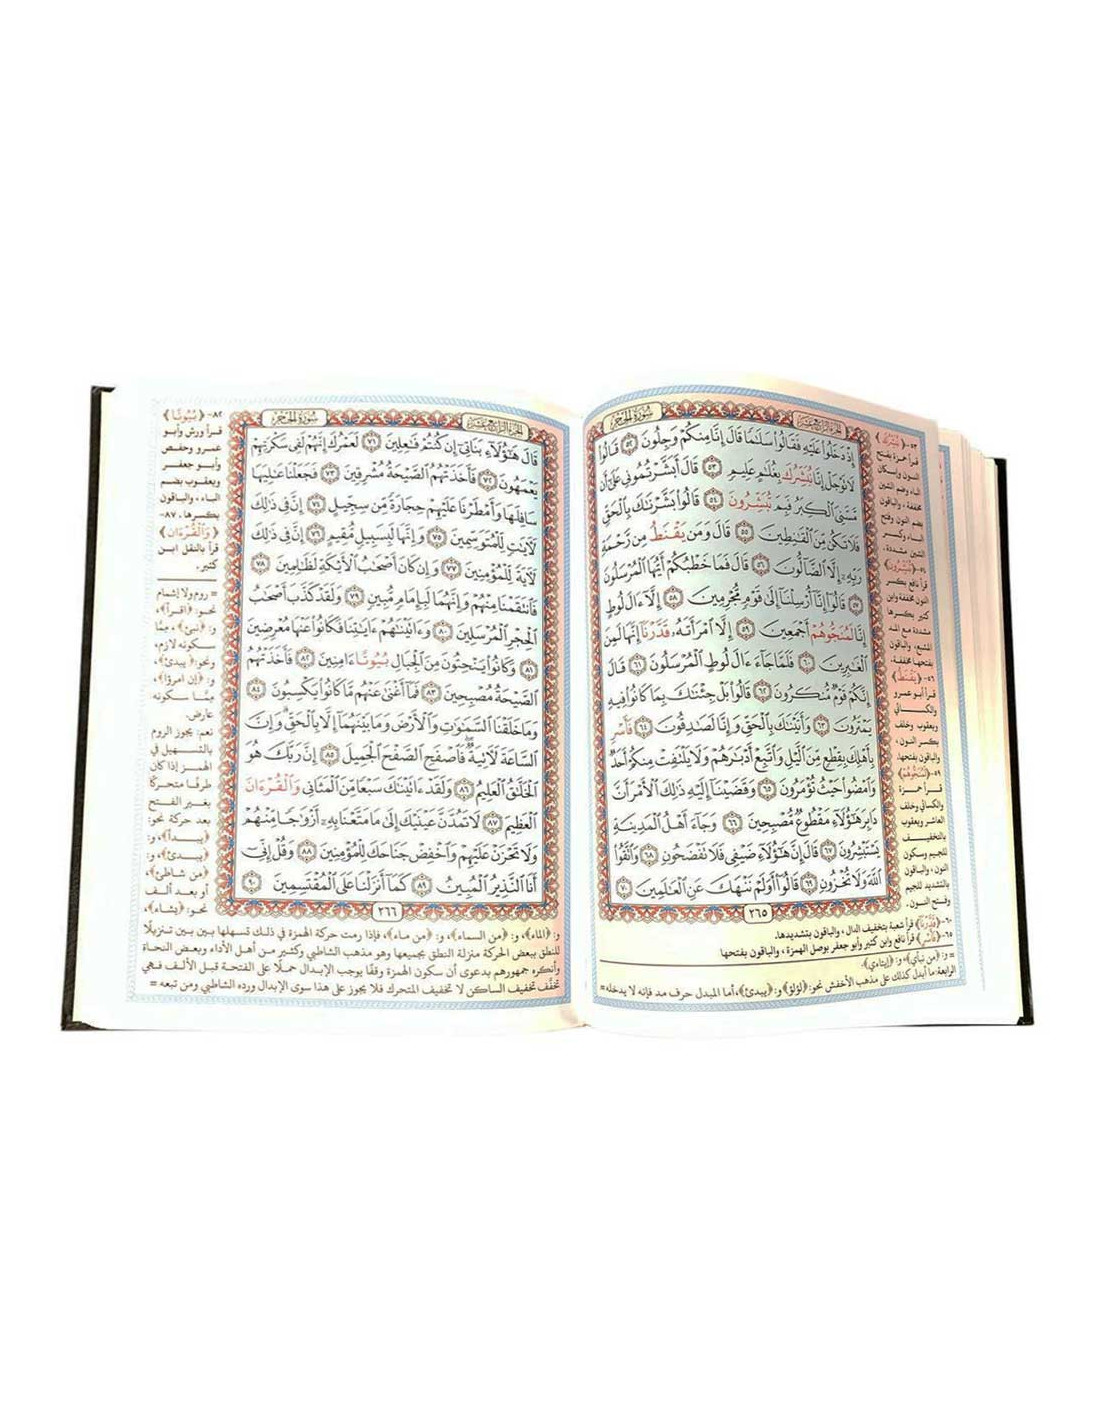 سُورَةُ الحِجْرِ
الجزء الرابع عشر
إِذْ دَخَلُوا۟ عَلَيْهِ فَقَالُوا۟ سَلَٰمًا قَالَ إِنَّا مِنكُمْ وَجِلُونَ ٥٢ قَالُوا۟
لَا تَوْجَلْ إِنَّا نُبَشِّرُكَ بِغُلَٰمٍ عَلِيمٍ ٥٣ قَالَ أَبَشَّرْتُمُونِى عَلَىٰٓ أَن
مَّسَّنِىَ ٱلْكِبَرُ فَبِمَ تُبَشِّرُونَ ٥٤ قَالُوا۟ بَشَّرْنَٰكَ بِٱلْحَقِّ
فَلَا تَكُن مِّنَ ٱلْقَٰنِطِينَ ٥٥ قَالَ وَمَن يَقْنَطُ مِن رَّحْمَةِ
رَبِّهِۦٓ إِلَّا ٱلضَّآلُّونَ ٥٦ قَالَ فَمَا خَطْبُكُمْ أَيُّهَا ٱلْمُرْسَلُونَ
٥٧ قَالُوٓا۟ إِنَّآ أُرْسِلْنَآ إِلَىٰ قَوْمٍ مُّجْرِمِينَ ٥٨ إِلَّآ ءَالَ لُوطٍ
إِنَّا لَمُنَجُّوهُمْ أَجْمَعِينَ ٥٩ إِلَّا ٱمْرَأَتَهُۥ قَدَّرْنَآ إِنَّهَا لَمِنَ
ٱلْغَٰبِرِينَ ٦٠ فَلَمَّا جَآءَ ءَالَ لُوطٍ ٱلْمُرْسَلُونَ ٦١ قَالَ
إِنَّكُمْ قَوْمٌ مُّنكَرُونَ ٦٢ قَالُوا۟ بَلْ جِئْنَٰكَ بِمَا كَانُوا۟ فِيهِ
يَمْتَرُونَ ٦٣ وَأَتَيْنَٰكَ بِٱلْحَقِّ وَإِنَّا لَصَٰدِقُونَ ٦٤ فَأَسْرِ
بِأَهْلِكَ بِقِطْعٍ مِّنَ ٱلَّيْلِ وَٱتَّبِعْ أَدْبَٰرَهُمْ وَلَا يَلْتَفِتْ مِنكُمْ أَحَدٌ
وَٱمْضُوا۟ حَيْثُ تُؤْمَرُونَ ٦٥ وَقَضَيْنَآ إِلَيْهِ ذَٰلِكَ ٱلْأَمْرَ أَنَّ
دَابِرَ هَٰٓؤُلَآءِ مَقْطُوعٌ مُّصْبِحِينَ ٦٦ وَجَآءَ أَهْلُ ٱلْمَدِينَةِ
يَسْتَبْشِرُونَ ٦٧ قَالَ إِنَّ هَٰٓؤُلَآءِ ضَيْفِى فَلَا تَفْضَحُونِ ٦٨ وَٱتَّقُوا۟
ٱللَّهَ وَلَا تُخْزُونِ ٦٩ قَالُوٓا۟ أَوَلَمْ نَنْهَكَ عَنِ ٱلْعَٰلَمِينَ ٧٠
٢٦٥
٦٠- ﴿قَدَّرْنَا﴾ قرأ شعبة بتخفيف الدال، والباقون بتشديدها.
٦٥- ﴿فَأَسْرِ﴾ قرأ نافع وابن كثير وأبو جعفر بوصل الهمزة، والباقون بفتحها
= و: ﴿من نبأي﴾ و: ﴿إيتاءي﴾.
الرابعة: ما أبدل كذلك على مذهب الأخفش نحو: ﴿لؤلؤ﴾ و: ﴿يبدئ﴾، أما المبدل حرف مد فإنه لا يدخله =
٥٣- ﴿نُبَشِّرُكَ﴾
قرأ حمزة بفتح
النون وإسكان
الباء وضم الشين
مخففة، والباقون
بضم النون وفتح
الباء وكسر
الشين مشددة.
٥٤- ﴿تُبَشِّرُونَ﴾
قرأ نافع بكسر
النون مخففة وابن
كثير بكسرها
مشددة مع المد
المشبع، والباقون
بفتحها مخففة.
٥٦- ﴿يَقْنَطُ﴾
قرأ أبو عمرو
والكسائي
ويعقوب وخلف
بكسر النون
والباقون بفتحها.
٥٩- ﴿لَمُنَجُّوهُمْ﴾
قرأ حمزة
والكسائي وخلف
العاشر ويعقوب
بالتخفيف
للجيم وسكون
النون، والباقون
بالتشديد للجيم
وفتح النون.
سُورَةُ الحِجْرِ
الجزء الرابع عشر
قَالَ هَٰٓؤُلَآءِ بَنَاتِىٓ إِن كُنتُمْ فَٰعِلِينَ ٧١ لَعَمْرُكَ إِنَّهُمْ لَفِى سَكْرَتِهِمْ
يَعْمَهُونَ ٧٢ فَأَخَذَتْهُمُ ٱلصَّيْحَةُ مُشْرِقِينَ ٧٣ فَجَعَلْنَا عَٰلِيَهَا
سَافِلَهَا وَأَمْطَرْنَا عَلَيْهِمْ حِجَارَةً مِّن سِجِّيلٍ ٧٤ إِنَّ فِى ذَٰلِكَ
لَءَايَٰتٍ لِّلْمُتَوَسِّمِينَ ٧٥ وَإِنَّهَا لَبِسَبِيلٍ مُّقِيمٍ ٧٦ إِنَّ فِى ذَٰلِكَ
لَءَايَةً لِّلْمُؤْمِنِينَ ٧٧ وَإِن كَانَ أَصْحَٰبُ ٱلْأَيْكَةِ لَظَٰلِمِينَ ٧٨
فَٱنتَقَمْنَا مِنْهُمْ وَإِنَّهُمَا لَبِإِمَامٍ مُّبِينٍ ٧٩ وَلَقَدْ كَذَّبَ أَصْحَٰبُ
ٱلْحِجْرِ ٱلْمُرْسَلِينَ ٨٠ وَءَاتَيْنَٰهُمْ ءَايَٰتِنَا فَكَانُوا۟ عَنْهَا مُعْرِضِينَ
٨١ وَكَانُوا۟ يَنْحِتُونَ مِنَ ٱلْجِبَالِ بُيُوتًا ءَامِنِينَ ٨٢ فَأَخَذَتْهُمُ
ٱلصَّيْحَةُ مُصْبِحِينَ ٨٣ فَمَآ أَغْنَىٰ عَنْهُم مَّا كَانُوا۟ يَكْسِبُونَ ٨٤
وَمَا خَلَقْنَا ٱلسَّمَٰوَٰتِ وَٱلْأَرْضَ وَمَا بَيْنَهُمَآ إِلَّا بِٱلْحَقِّ وَإِنَّ
ٱلسَّاعَةَ لَءَاتِيَةٌ فَٱصْفَحِ ٱلصَّفْحَ ٱلْجَمِيلَ ٨٥ إِنَّ رَبَّكَ هُوَ
ٱلْخَلَّٰقُ ٱلْعَلِيمُ ٨٦ وَلَقَدْ ءَاتَيْنَٰكَ سَبْعًا مِّنَ ٱلْمَثَانِى وَٱلْقُرْءَانَ
ٱلْعَظِيمَ ٨٧ لَا تَمُدَّنَّ عَيْنَيْكَ إِلَىٰ مَا مَتَّعْنَا بِهِۦٓ أَزْوَٰجًا مِّنْهُمْ
وَلَا تَحْزَنْ عَلَيْهِمْ وَٱخْفِضْ جَنَاحَكَ لِلْمُؤْمِنِينَ ٨٨ وَقُلْ إِنِّىٓ
أَنَا ٱلنَّذِيرُ ٱلْمُبِينُ ٨٩ كَمَآ أَنزَلْنَا عَلَى ٱلْمُقْتَسِمِينَ ٩٠
٢٦٦
٨٢- ﴿بُيُوتًا﴾
قرأ ورش وأبو
عمرو وحفص
وأبو جعفر
ويعقوب بضم
الباء، والباقون
بكسرها. ٨٧-
﴿وَالْقُرْءَانَ﴾
قرأ بالنقل ابن
كثير.
= روم ولا إشمام
نحو: ﴿اقرأ﴾،
و: ﴿نبئ﴾، ممّا
سكونه لازم،
ونحو: ﴿يبدئ﴾،
و: ﴿إن امرؤا﴾،
ممّا سكونه
عارض.
نعم، يجوز الروم
بالتسهيل في
الهمز إذا كان
طرفًا متحركًا
بغير الفتح
بعد حركة نحو:
﴿يبدأ﴾، و:
﴿يبدئ﴾، و:
﴿من شاطئ﴾،
أو بعد ألف
نحو: ﴿يشاء﴾،
و: ﴿الماء﴾، و: ﴿من السماء﴾، و: ﴿من ماء﴾، فإذا رمت حركة الهمزة في ذلك تسهلها بين بين تنزيلًا
للنطق ببعض الحركة منزلة النطق بجميعها وهو مذهب الشاطبي وكثير من أهل الأداء وبعض النحاة
وأنكره جمهورهم بدعوى أن سكون الهمزة وقفًا يوجب الإبدال حملًا على الفتحة قبل الألف فهي
تخفّف تخفيف الساكن لا تخفيف المتحرك فلا يجوز على هذا سوى الإبدال ورده الشاطبي ومن تبعه =